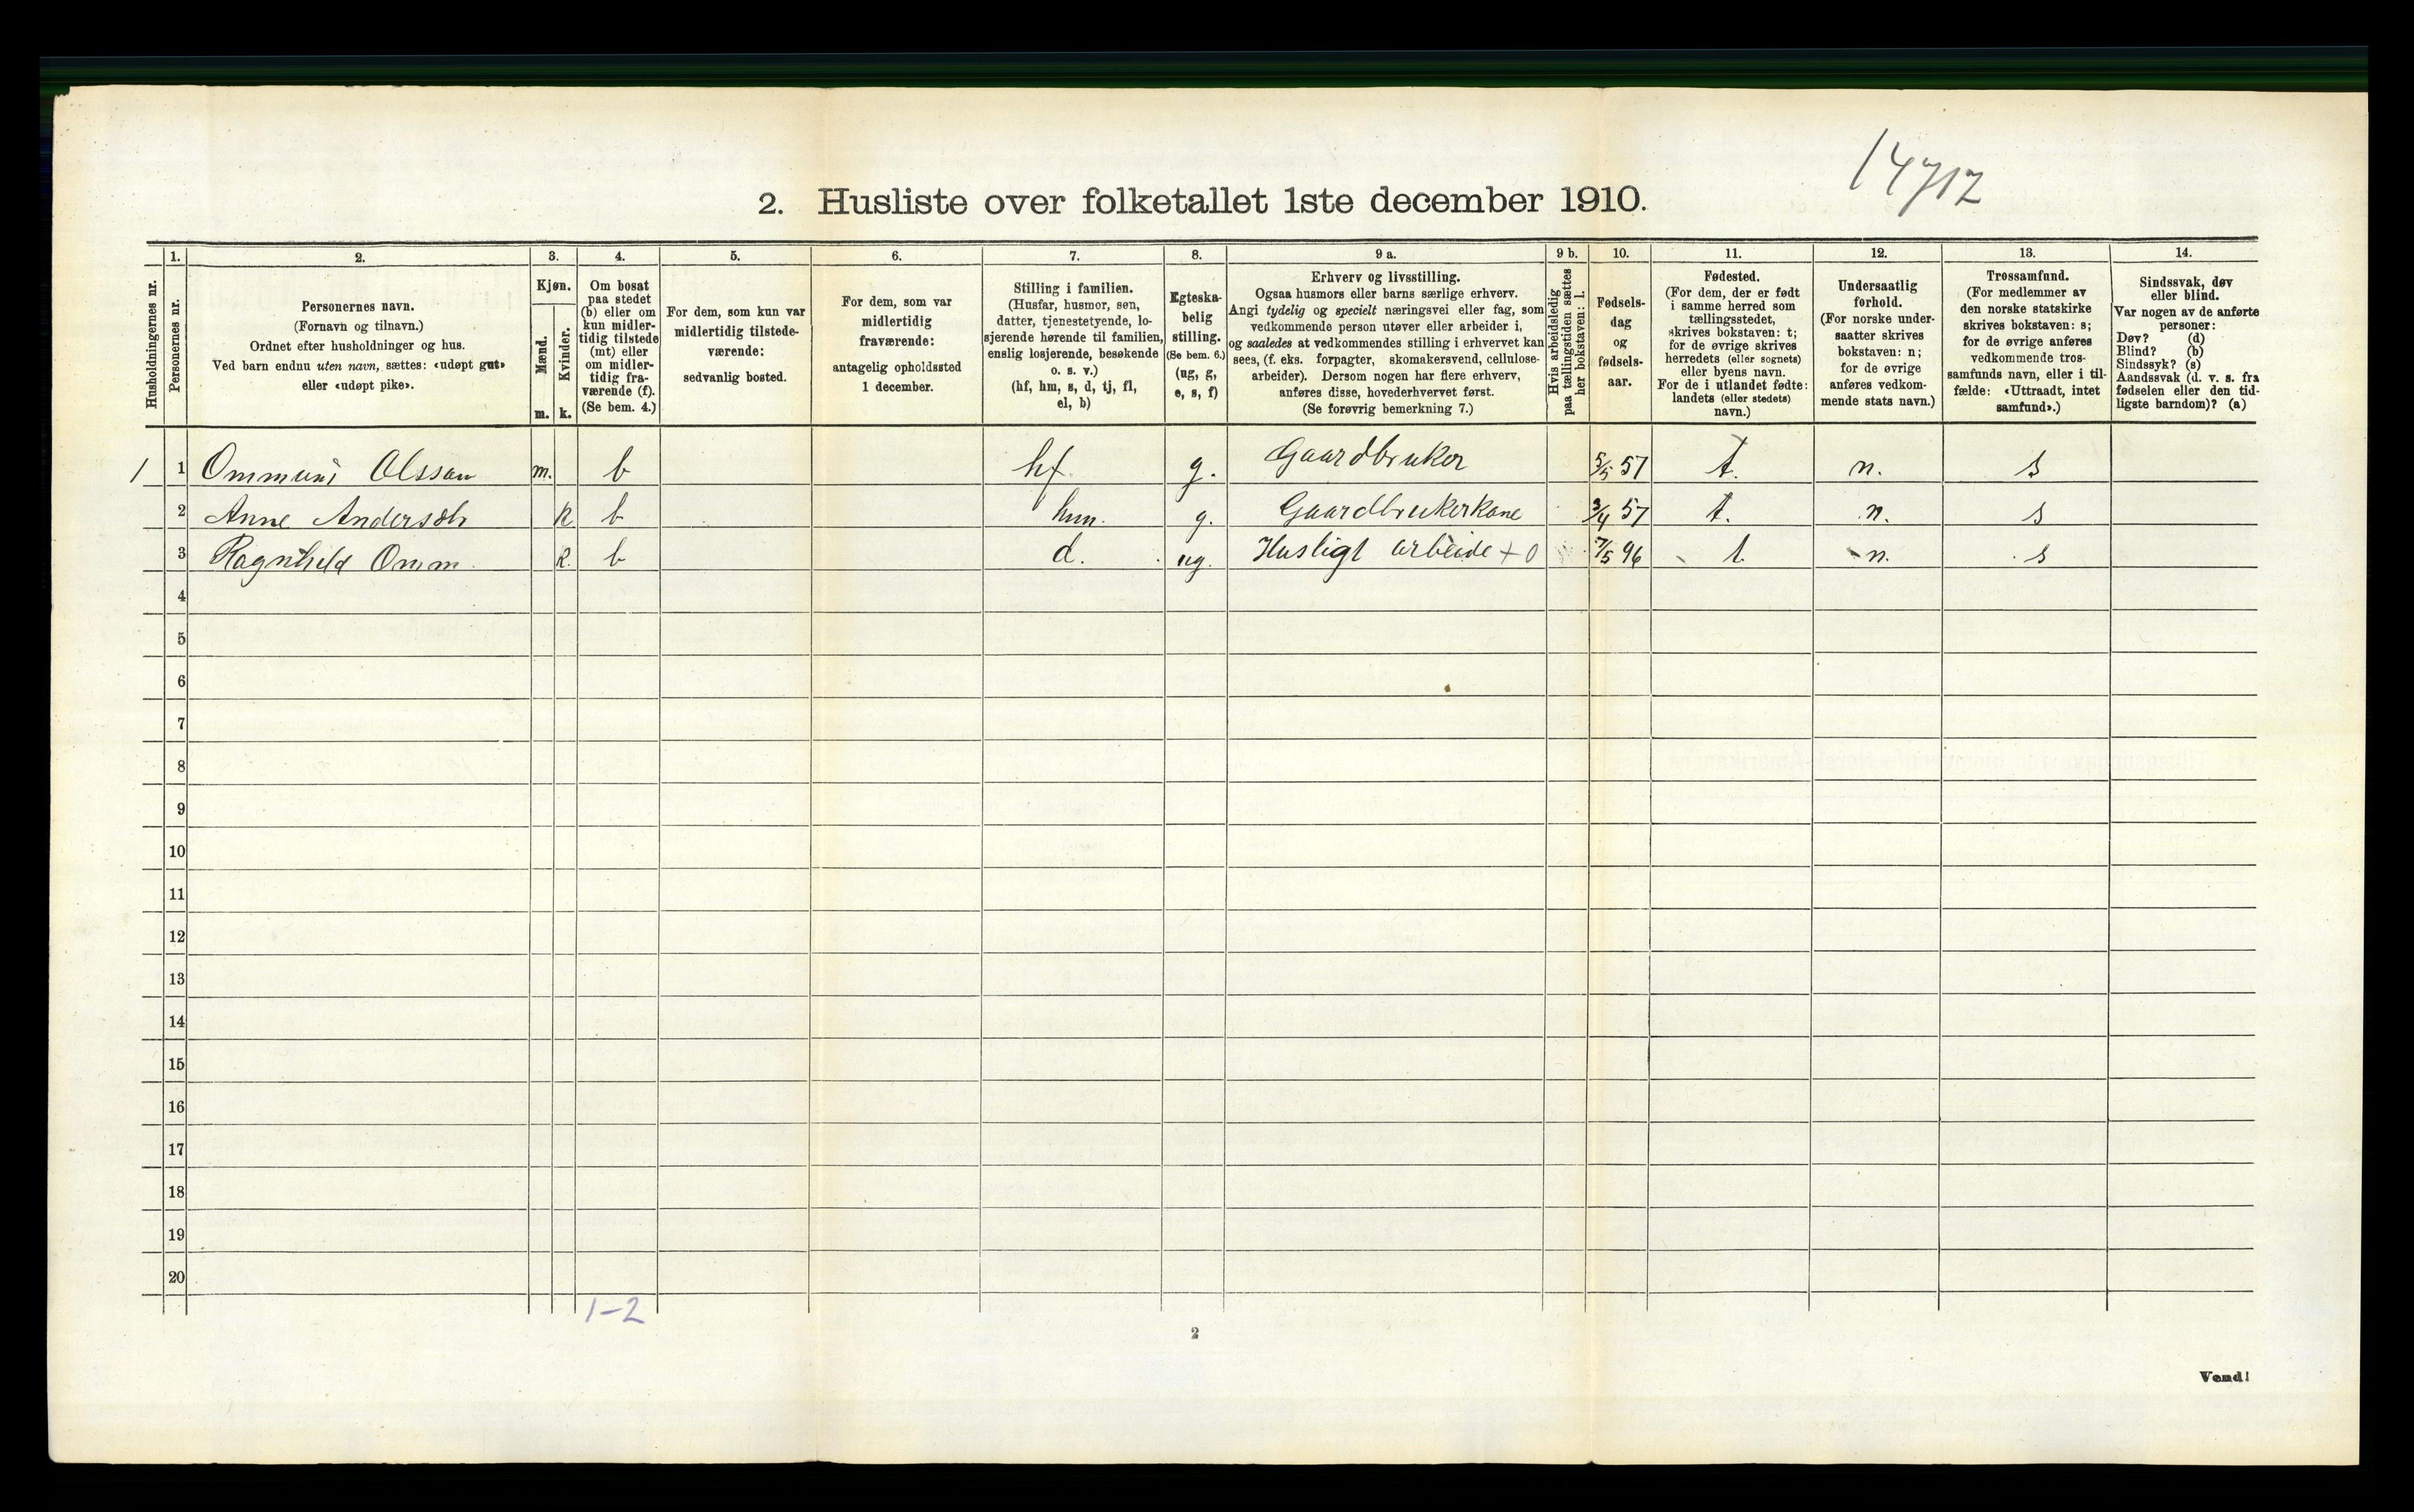 14712
2. Husliste over folketallet 1ste december 1910.
Husholdningernes nr.
1.
Personernes nr.
2.
Personernes navn.
(Fornavn og tilnavn.)
Ordnet efter husholdninger og hus.
Ved barn endnu uten navn, sættes: «udøpt gut»
eller «udøpt pike».
3.
Kjøn.
Mænd.
Kvinder.
m. k.
4.
Om bosat
paa stedet
(b) eller om
kun midler-
tidig tilstede
(mt) eller
om midler-
tidig fra-
værende (f).
(Se bem. 4.)
5.
For dem, som kun var
midlertidig tilstede-
værende:
sedvanlig bosted.
6.
For dem, som var
midlertidig
fraværende:
antagelig opholdssted
1 december.
7.
Stilling i familien.
(Husfar, husmor, søn,
datter, tjenestetyende, lo-
sjerende hørende til familien,
enslig losjerende, besøkende
o. s. v.)
(hf, hm, s, d, tj, fl,
el, b)
8.
Egteska-
belig
stilling.
(Se bem. 6.)
(ug, g,
e, s, f)
9 a.
Erhverv og livsstilling.
Ogsaa husmors eller barns særlige erhverv.
Angi tydelig og specielt næringsvei eller fag, som
vedkommende person utøver eller arbeider i,
og saaledes at vedkommendes stilling i erhvervet kan
sees, (f. eks. forpagter, skomakersvend, cellulose-
arbeider). Dersom nogen har flere erhverv,
anføres disse, hovederhvervet først.
(Se forøvrig bemerkning 7.)
9 b.
Hvis arbeidsledig
paa tællingstiden sættes
her bokstaven: l.
10.
Fødsels-
dag
og
fødsels-
aar.
11.
Fødested.
(For dem, der er født
i samme herred som
tællingsstedet,
skrives bokstaven: t;
for de øvrige skrives
herredets (eller sognets)
eller byens navn.
For de i utlandet fødte:
landets (eller stedets)
navn.)
12.
Undersaatlig
forhold.
(For norske under-
saatter skrives
bokstaven: n;
for de øvrige
anføres vedkom-
mende stats navn.)
13.
Trossamfund.
(For medlemmer av
den norske statskirke
skrives bokstaven: s;
for de øvrige anføres
vedkommende tros-
samfunds navn, eller i til-
fælde: «Uttraadt, intet
samfund».)
14.
Sindssvak, døv
eller blind.
Var nogen av de anførte
personer:
Døv? (d)
Blind? (b)
Sindssyk? (s)
Aandssvak (d. v. s. fra
fødselen eller den tid-
ligste barndom)? (a)
1 1 Ommund Olssøn m. b hf. g. Gaardbruker 5/5 57 t. n. s
2 Anne Andersdtr k b hm. g. Gaardbrukerkone 3/4 57 t. n. s
3 Ragnhild Omm. k. b d. ug. Husligt arbeide + 0 7/5 96 t. n. s
4
5
6
7
8
9
10
11
12
13
14
15
16
17
18
19
20
1-2
2
Vend!